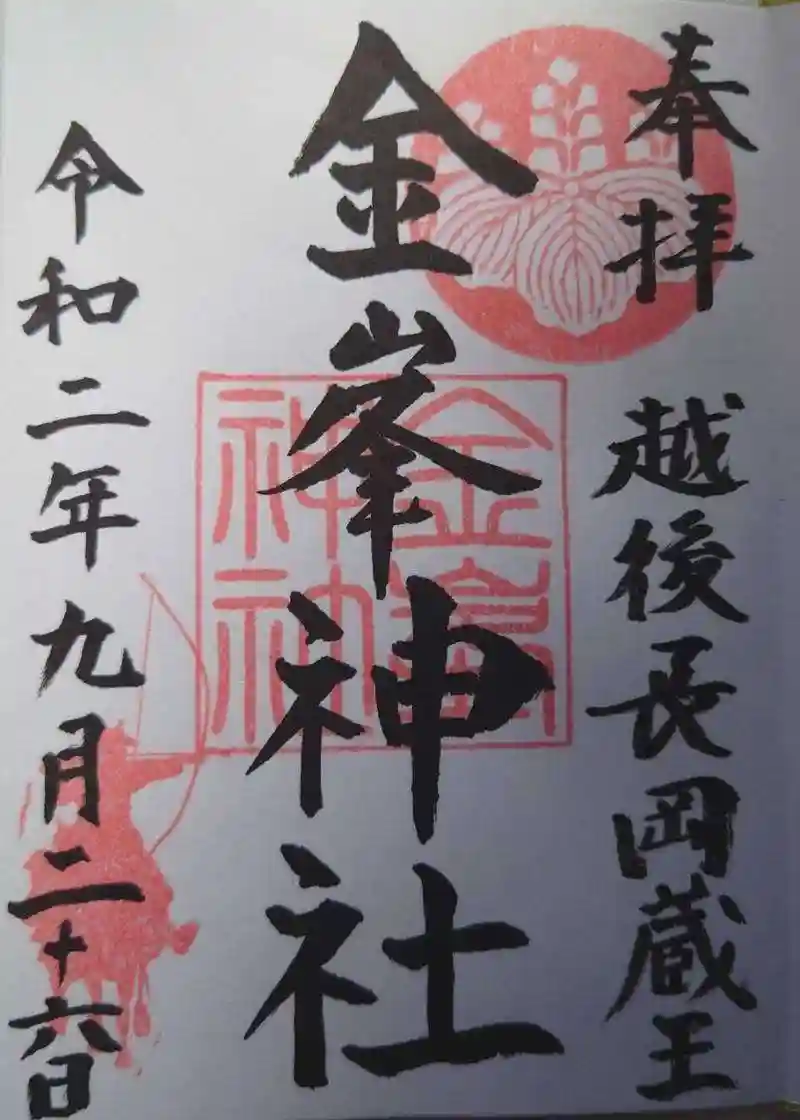 奉拝
越後長岡蔵王
金峯神社
金峯神社
令和二年九月二十六日